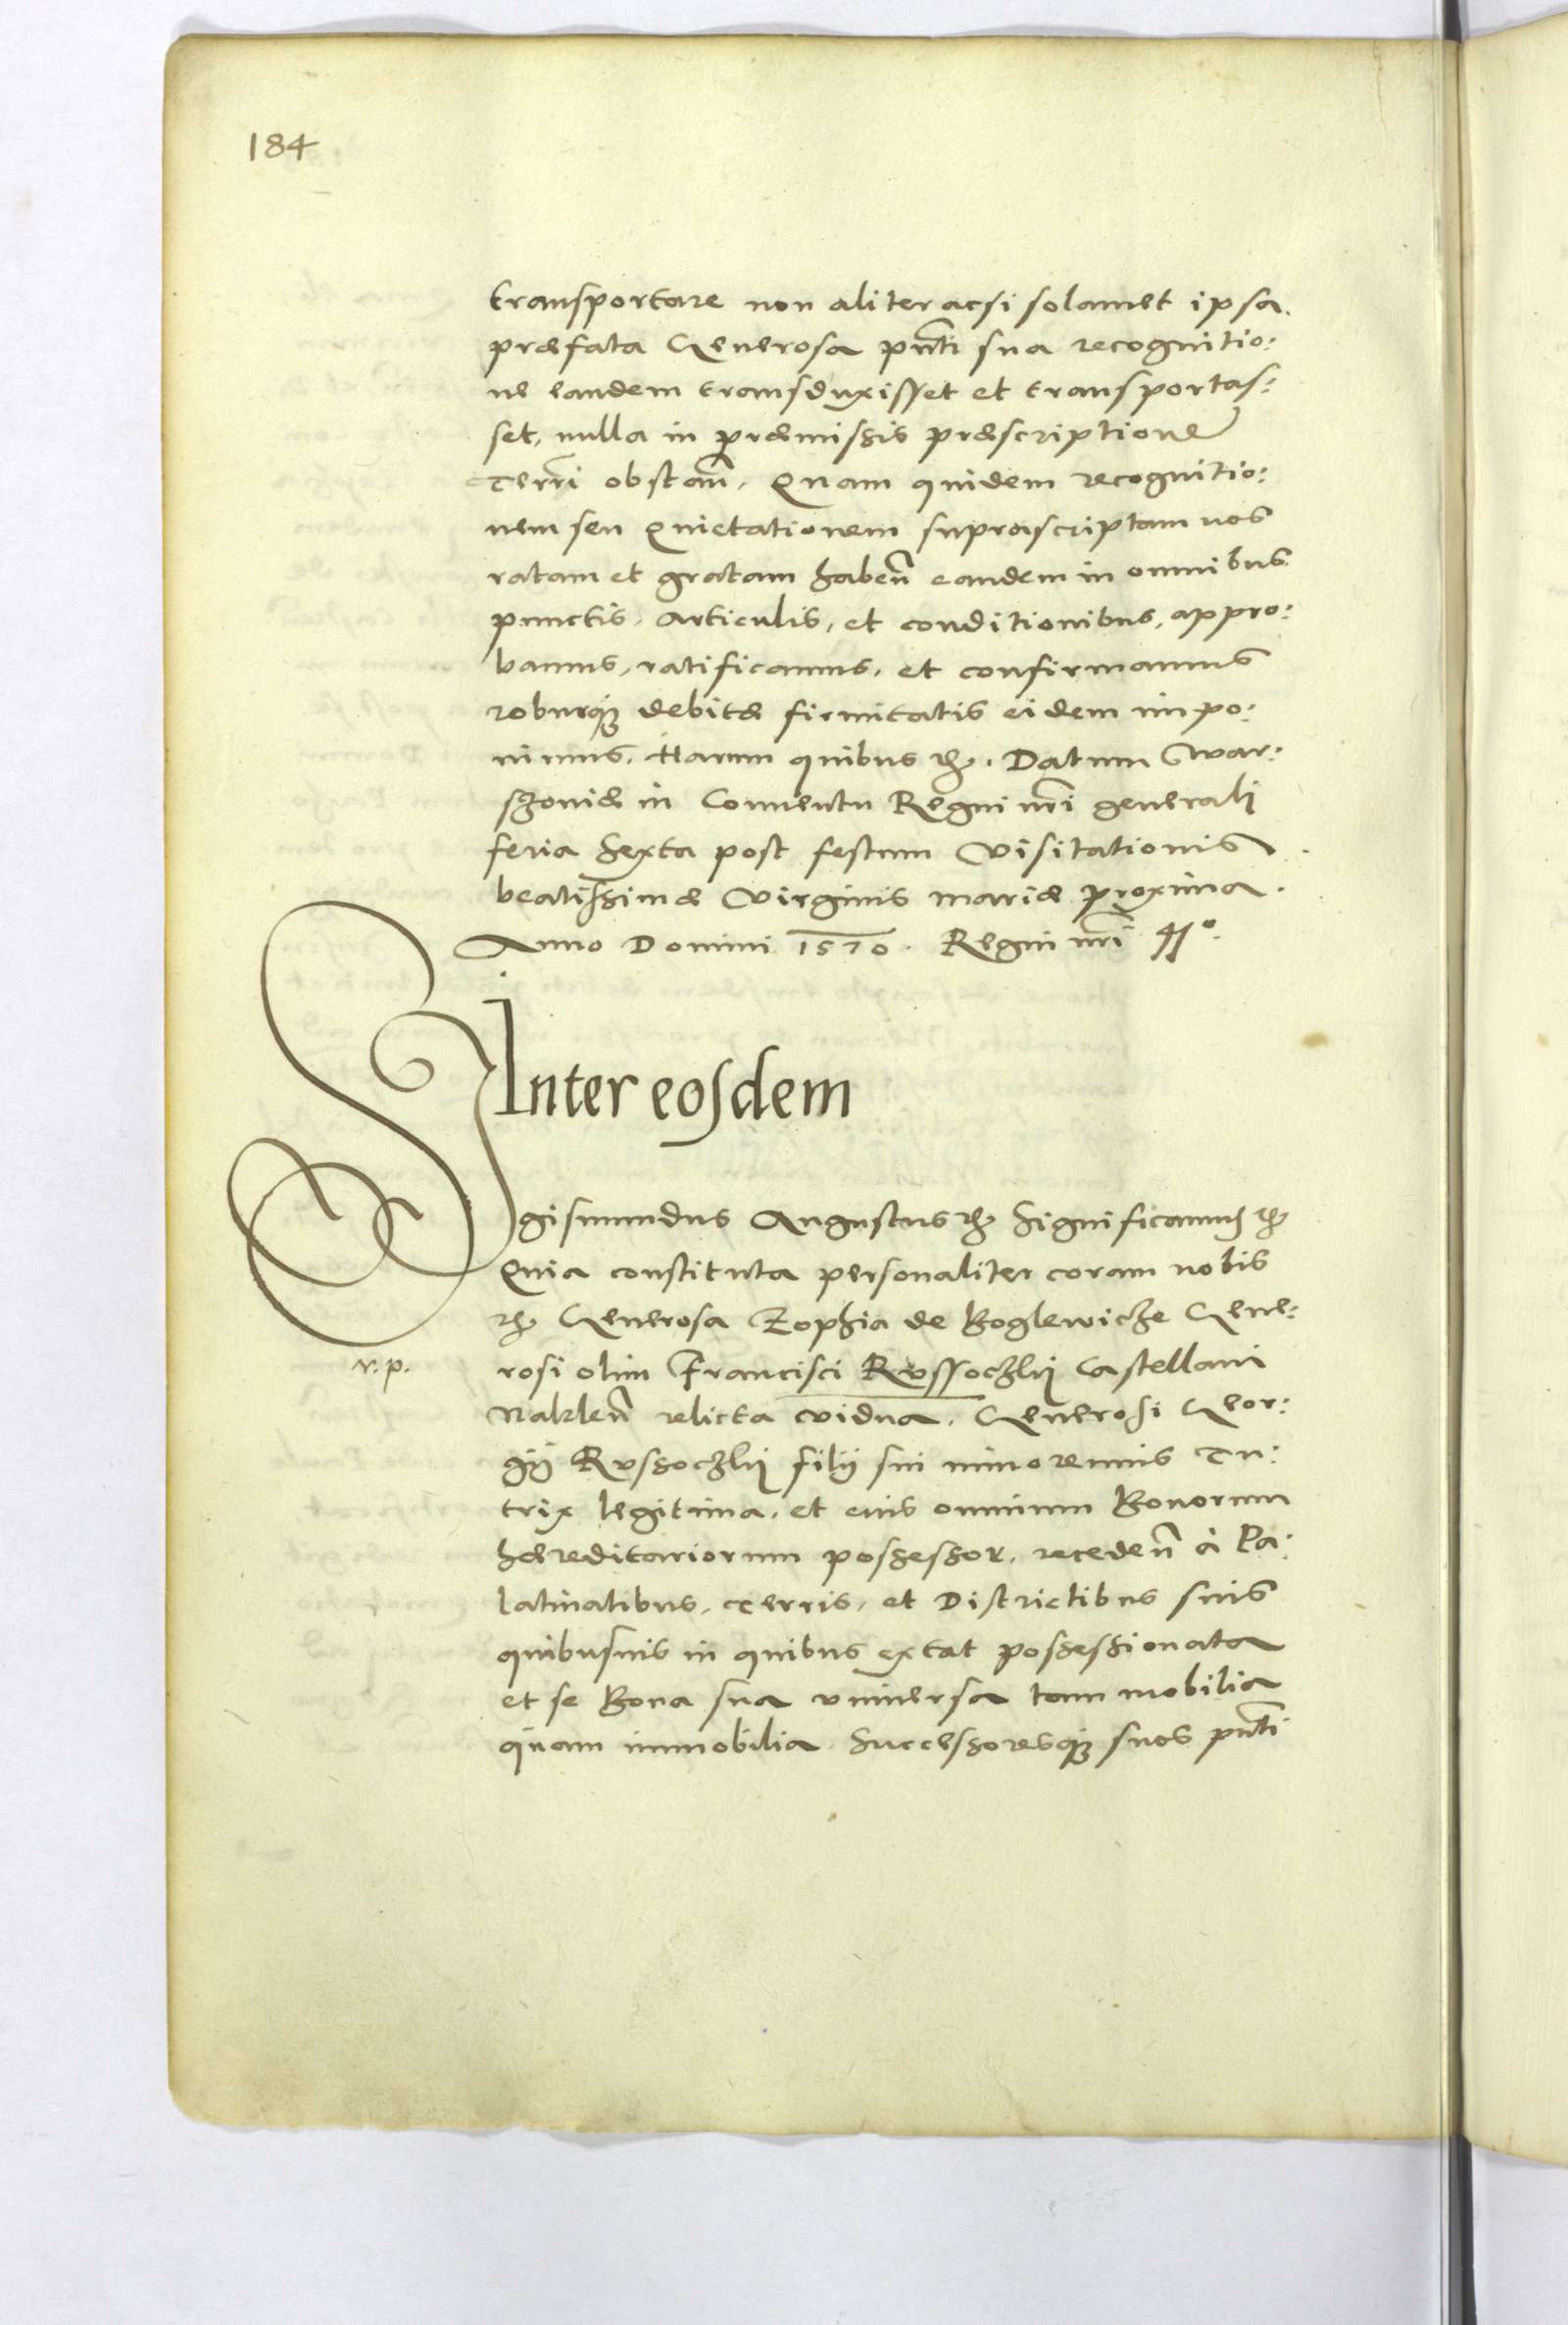 184
transportare non aliter acsi solamet ipsa.
præfata Generosa pn̄ti sua recognitio:
ne eandem transduxisset et transportas:
set, nulla in præmissis præscriptione
Terr̄i obstan̄. Quam quidem recognitio:
nem seu Quietationem suprascriptam nos
ratam et gratam haben̄ eandem in omnibus
punctis, articulis, et conditionibus, appro:
bamus, ratificamus, et confirmamus
roburq₃ debitæ firmitatis eidem impo:
nimus. Harum quibus etc. Datum War:
szoviæ in Conventu Regni nr̄i generali
feria Sexta post festum Visitationis
beatissimæ Virginis mariæ proxima.
Anno Domini 1570. Regni nr̄i 41°.
Inter eosdem
Sigismundus Augustus etc Significamus etc
Quia constituta personaliter coram nobis
etc Generosa Zophia de Boglewicze Gene:
v. p.
rosi olim Francisci Russoczkij Castellani
Naklen̄ relicta vidua. Generosi Geor:
gij Russoczkij filij sui minorennis Tu:
trix legitima, et eius omnium Bonorum
hæreditariorum possessor, receden̄ à Pa:
latinatibus, Terris, et Districtibus suis
quibusuis in quibus extat possessionata
et se Bona sua vniuersa tam mobilia
quam immobilia Successoresq₃ suos pn̄ti